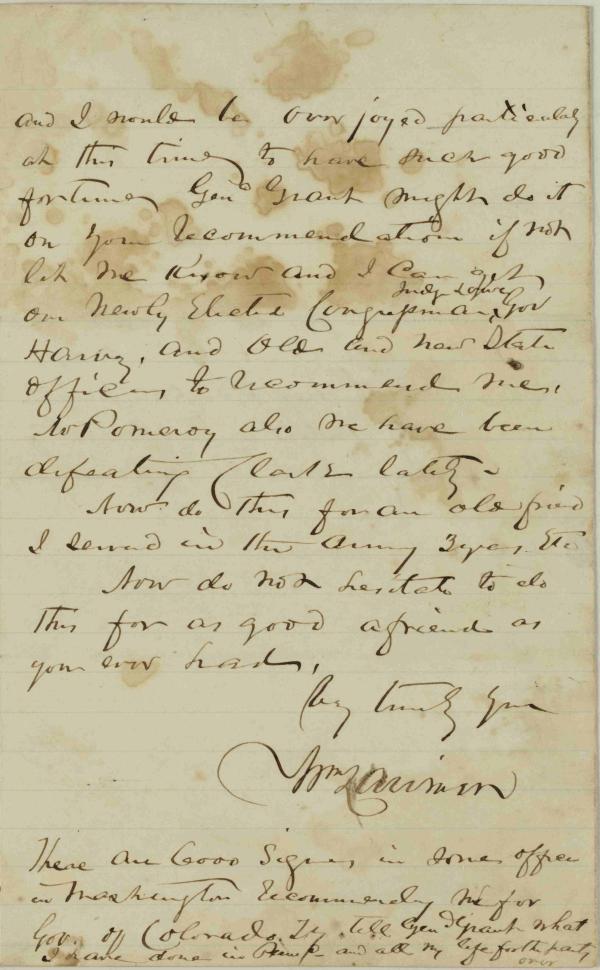 and I would be over joyed particularly
at this time to have such good
fortune Genl Grant might do it
on your recommendation if not
let me know and I can get
our Newly Elected Congressman, Judge Lowe, Gov
Harvey, and Old and new State
officers to recommend me.
Pomeroy also we have been
defeating Clark lately -
Now do this for an old friend
I served in the army 3 yes. Etc
Now do not hesitate to do
this for as good a friend as
you ever had,
truly your
Wm Larimer
There are 6000 Signers in some office
in Washington recommending me for
Gov. of Colorado Ty. tell Genl Grant what
I have done in and all my life for the party
over